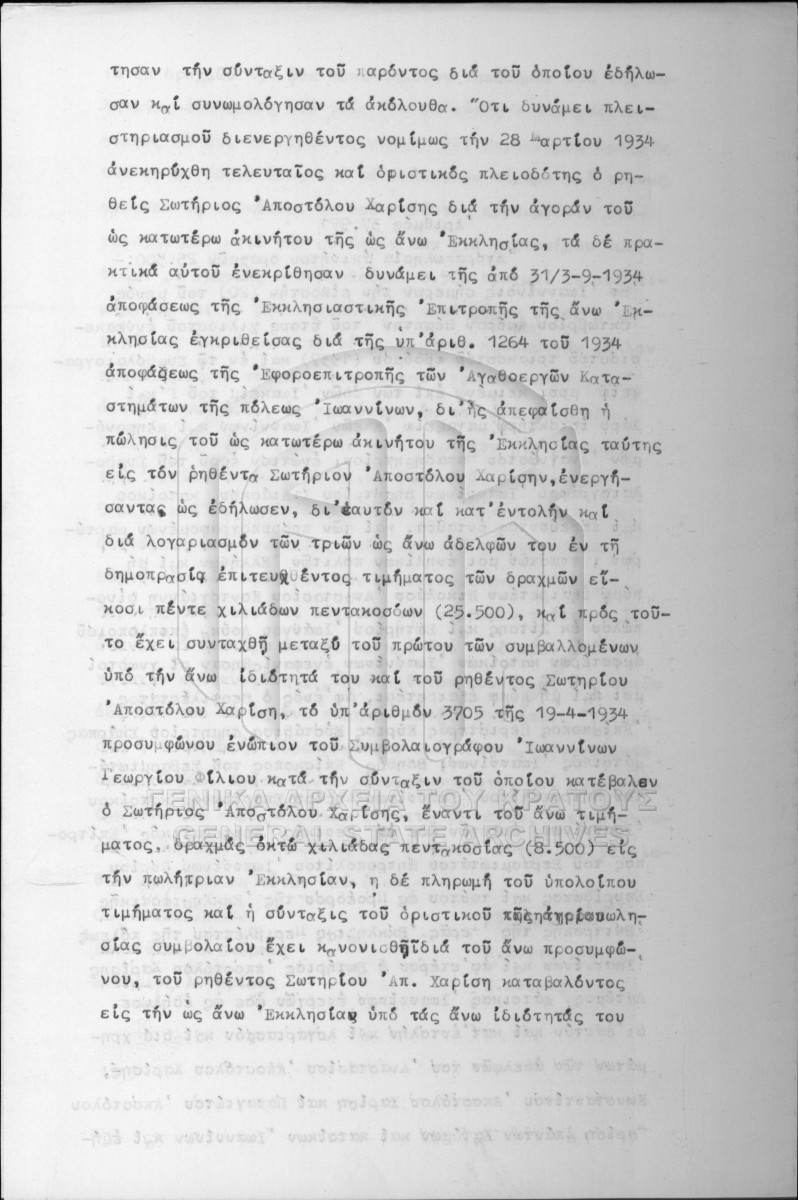 τησαν τήν σύνταξιν τοῦ παρόντος διά τοῦ ὁποίου ἐδήλω-
σαν καί συνωμολόγησαν τά ἀκόλουθα. Ὅτι δυνάμει πλει-
στηριασμοῦ διενεργηθέντος νομίμως τήν 28 Μαρτίου 1934
ἀνεκηρύχθη τελευταῖος καί ὁριστικός πλειοδότης ὁ ρη-
θείς Σωτήριος Ἀποστόλου Χαρίσης διά τήν ἀγοράν τοῦ
ὡς κατωτέρω ἀκινήτου τῆς ὡς ἄνω Ἐκκλησίας, τά δέ πρα-
κτικά αὐτοῦ ἐνεκρίθησαν δυνάμει τῆς ἀπό 31/3-9-1934
ἀποφάσεως τῆς Ἐκκλησιαστικῆς Ἐπιτροπῆς τῆς ἄνω Ἐκ-
κλησίας ἐγκριθείσας διά τῆς ὑπ'ἀριθ. 1264 τοῦ 1934
ἀποφάσεως τῆς Ἐφοροεπιτροπῆς τῶν Ἀγαθοεργῶν Κατα-
στημάτων τῆς πόλεως Ἰωαννίνων, δι'ἧς ἀπεφαίσθη ἡ
πώλησις τοῦ ὡς κατωτέρω ἀκινήτου τῆς Ἐκκλησίας ταύτης
εἰς τόν ρηθέντα Σωτήριον Ἀποστόλου Χαρίσην,ἐνεργή-
σαντας ὡς ἐδήλωσεν, δι'ἑαυτόν καί κατ'ἐντολήν καί
διά λογαριασμόν τῶν τριῶν ὡς ἄνω ἀδελφῶν του ἐν τῇ
δημοπρασίᾳ ἐπιτευχθέντος τιμήματος τῶν δραχμῶν εἴ-
κοσι πέντε χιλιάδων πεντακοσόων (25.500), καί πρός τοῦ-
το ἔχει συνταχθῆ μεταξύ τοῦ πρώτου τῶν συμβαλλομένων
ὑπό τήν ἄνω ἰδιότητά του καί τοῦ ρηθέντος Σωτηρίου
Ἀποστόλου Χαρίση, τό ὑπ'ἀριθμόν 3705 τῆς 19-4-1934
προσυμφώνου ἐνώπιον τοῦ Συμβολαιογράφου Ἰωαννίνων
Γεωργίου Φίλιου κατά τήν σύνταξιν τοῦ ὁποίου κατέβαλεν
ΓΕΝΙΚΑ ΑΡΧΕΙΑ ΤΟΥ ΚΡΑΤΟΥΣ
ὁ Σωτήριος Ἀποστόλου Χαρίσης, ἔναντι τοῦ ἄνω τιμή-
GENERAL STATE ARCHIVES
ματος, δραχμάς ὀκτώ χιλιάδας πεντακοσίας (8.500) εἰς
τήν πωλήτριαν Ἐκκλησίαν, η δέ πληρωμή τοῦ ὑπολοίπου
τιμήματος καί ἡ σύνταξις τοῦ ὁριστικοῦ τῆς ἀγοραπωλη-
σίας συμβολαίου ἔχει κανονισθῆ διά τοῦ ἄνω προσυμφώ-
νου, τοῦ ρηθέντος Σωτηρίου Ἀπ. Χαρίση καταβαλόντος
εἰς τήν ὡς ἄνω Ἐκκλησίαν ὑπό τάς ἄνω ἰδιότητάς του